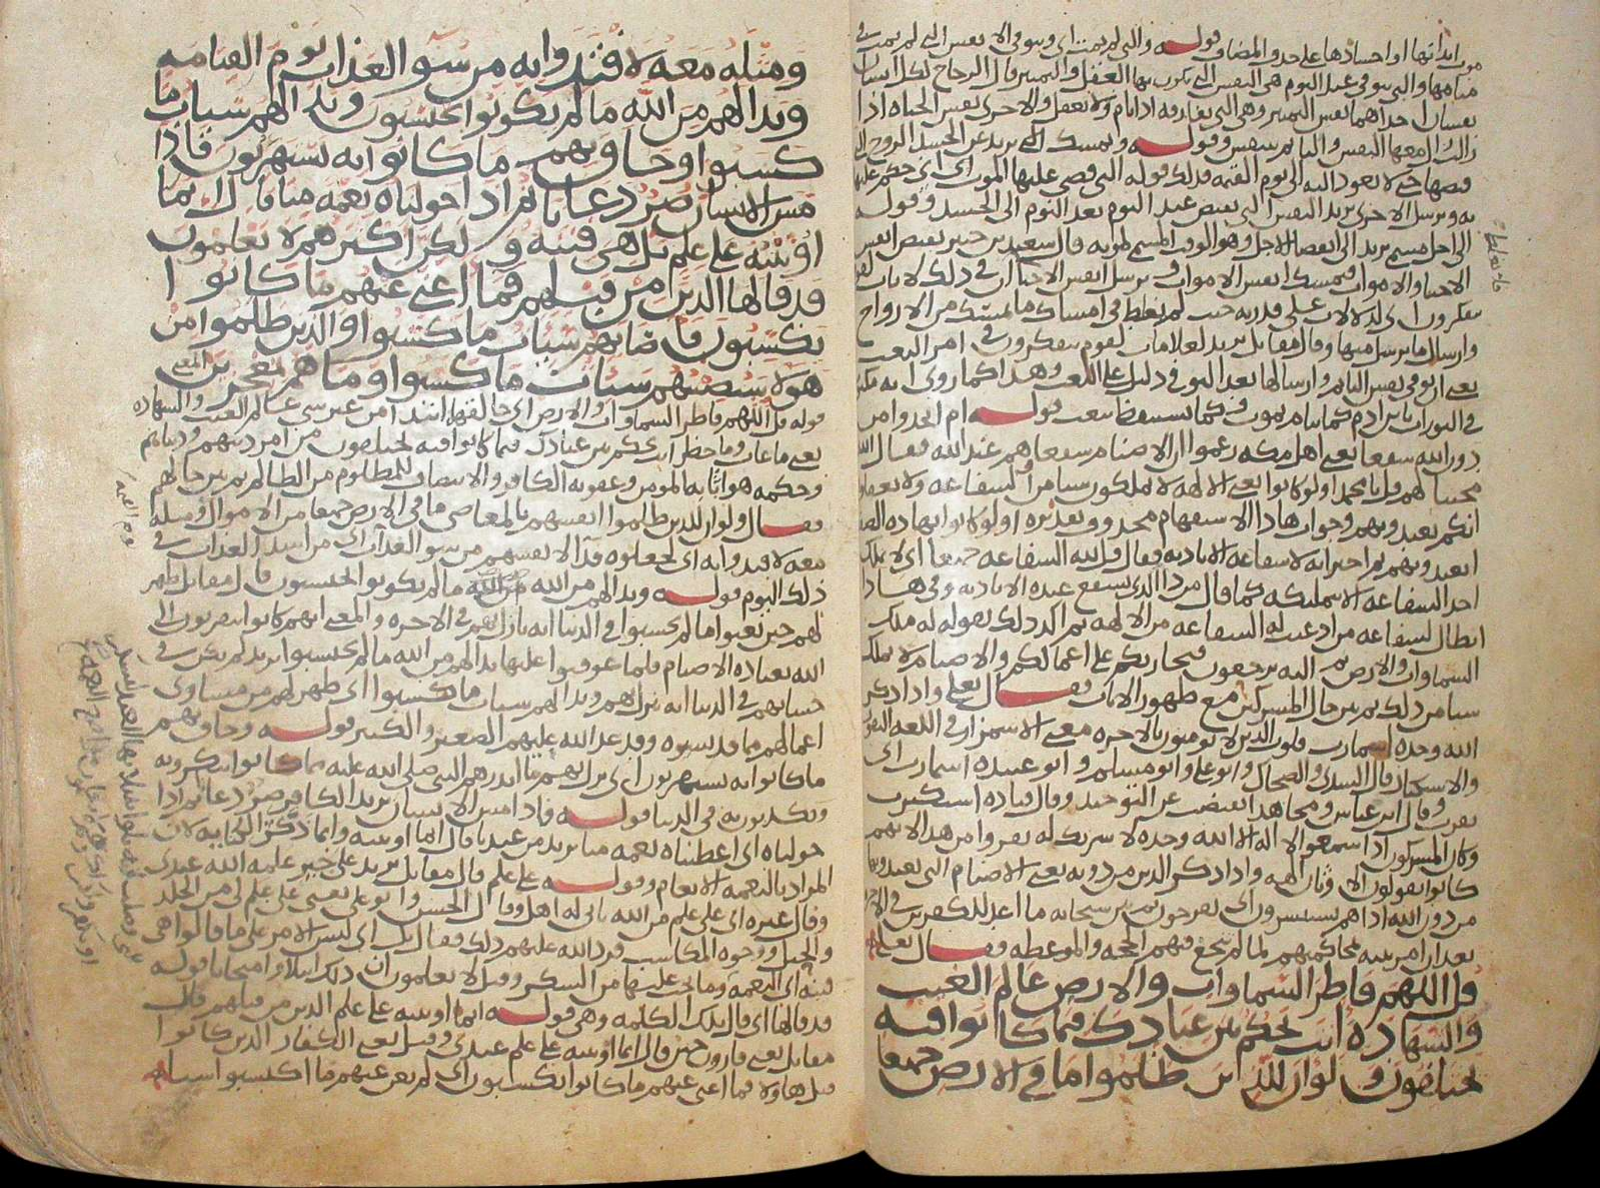 موت ابدانها او اجسادها على حذف المضاف قوله والتي لم تمت اي ويتوفى الانفس التي لم تمت في
منامها والتي تتوفى عند النوم هي النفس التي يكون بها العقل والتمييز قال الزجاج لكل انسان
نفسان احداهما نفس التمييز وهي التي تفارقه اذا نام ولا يعقل والاخرى نفس الحياة اذا
زالت زال معها النفس والنائم يتنفس وقوله فيمسك التي يريد عن الجسد الروح التي
قضاها حتى لا تعود اليه الى يوم القيمة فذلك قوله التي قضى عليها الموت اي التي حكم عليها
به ويرسل الاخرى يريد النفس التي تقبض عند النوم يعد النوم الى الجسد وقوله
الى اجل مسمى يريد الى انقضاء الاجل وهو الوقت المسمى لموته قال سعيد بن جبير يقبض انفس
الاحياء والاموات فيمسك انفس الاموات ويرسل انفس الاحياء ان في ذلك لايات لقوم
يتفكرون اي لدلالات على قدرته حيث لم يغلط في امساك ما يمسك من الارواح
وارسال ما يرسل منها وقال مقاتل يريد لعلامات لقوم يتفكرون في امر البعث
يعني ان توفي نفس النائم وارسالها بعد التوفي دليل على البعث وهذا كما روي انه مكتوب
في التوراة يا بن ادم كما تنام تموت وكما تستيقظ تبعث قوله ام اتخذوا من
دون الله شفعاء يعني اهل مكة زعموا ان الاصنام شفعاهم عند الله فقال الله
مجيبا لهم قل يا محمد اولو كانوا يعني الالهة لا يملكون شيئا من الشفاعة ولا يعقلون
انكم تعبدونهم وجواب هذا الاستفهام محذوف تقديره اولو كانوا بهذه الصفة
تعبدونهم ثم اخبر انه لا شفاعة الا باذنه فقال قل لله الشفاعة جميعا اي لا يملك
احد الشفاعة الا بتمليكه كما قال من ذا الذي يشفع عنده الا باذنه وفي هذا
ابطال لشفاعة من ادعيت له الشفاعة من الالهة ثم اكد ذلك بقوله له ملك
السماوات والارض ثم اليه ترجعون فيجازيكم على اعمالكم والاصنام لا تملك
شيئا من ذلك ثم بين حال المشركين مع ظهور الايات فقال تعالى واذا ذكر
الله وحده اشمازت قلوب الذين لا يومنون بالاخرة معنى الاشمئزاز في اللغة النفور
والاستكبار قال السدي والضحاك وابو علي وابو مسلم وابو عبيدة اشمازت اي
نفرت وقال ابن عباس ومجاهد انقبضت عن التوحيد وقال قتادة استكبرت
وكان المشركون اذا سمعوا لا اله الا الله وحده لا شريك له نفروا من هذا لانهم
كانوا يقولون الاوثان الهة واذا ذكر الذين من دونه يعني الاصنام التي تعبدونها
من دون الله اذا هم يستبشرون اي يفرحون ثم بين سبحانه ما اعد للكافرين في الاخرة
بعد ان امر نبيه بمحاكمتهم لما لم تنجع فيهم الحجة والموعظة فقال تعالى
قل اللهم فاطر السماوات والارض عالم الغيب
والشهادة انت تحكم بين عبادك فيما كانوا فيه
يختلفون ولو ان للذين ظلموا ما في الارض جميعا
ومثله معه لافتدوا به من سو العذاب يوم القيامة
وبدا لهم من الله ما لم يكونوا يحتسبون وبدا لهم سيئات ما
كسبوا وحاق بهم ما كانوا به يستهزون فاذا
مس الانسان ضر دعانا ثم اذا خولناه نعمة منا قال انما
اوتيته على علم بل هي فتنة ولكن اكثرهم لا يعلمون
قد قالها الذين من قبلهم فما اغنى عنهم ما كانوا
يكسبون فاصابهم سيئات ما كسبوا والذين ظلموا من
هولا سيصيبهم سيئات ما كسبوا وما هم بمعجزين
قوله قل اللهم فاطر السماوات والارض اي خالقهما انت عالم الغيب والشهادة
وحكمه هو اثابة المومن وعقوبة الكافر والانتصاف للمظلوم من الظالم ثم بين حالهم
فقال ولو ان للذين ظلموا انفسهم بالمعاصي ما في الارض جميعا من الاموال ومثله
معه لافتدوا به اي لجعلوه فدا لانفسهم من سو العذاب اي من اشد العذاب في
ذلك اليوم قوله وبدا لهم من الله ما لم يكونوا يحتسبون قال مقاتل ظهر
لهم حين بعثوا ما لم يحتسبوا في الدنيا انه نازل بهم في الاخرة والمعنى انهم كانوا يتقربون الى
الله بعبادة الاصنام فلما عوقبوا عليها بدا لهم من الله ما لم يحتسبوا يريد لم يكن في
حسابهم في الدنيا انه ينزل بهم وبدا لهم سيئات ما كسبوا اي ظهر لهم من مساوئ
اعمالهم ما قد نسيوه وقد عد الله عليهم الصغير والكبير قوله وحاق بهم
ما كانوا به يستهزون اي نزل بهم ما انذرهم النبي صلى الله عليه مما كانوا ينكرونه
ويكذبون به في الدنيا قوله فاذا مس الانسان يريد الكافر ضر دعانا ثم اذا
خولناه اي اعطيناه نعمة منا يريد من عندنا قال انما اوتيته وانما ذكر الكناية لان
المراد بالنعمة الانعام وقوله على علم قال مقاتل يريد على خير علمه الله عندي
وقال غيره اي على علم من الله باني له اهل وقال الحسن وابو علي يعني على علم لي من الجلد
والحيل ووجوه المكاسب فرد الله عليهم ذلك فقال بل اي ليس الامر على ما قالوا هي
فتنة اي النعمة وما يجب عليها من الشكر وقيل لا يعلمون ان ذلك ابتلاء وامتحانا قوله
قد قالها اي قال تلك الكلمة وهي قوله انما اوتيته على علم الذين من قبلهم قال
مقاتل يعني قارون حين قال انما اوتيته على علم عندي وقيل يعني الكفار الذين كانوا
قبل هاولا فما اغنى عنهم ما كانوا يكسبون اي لم يغن عنهم ما اكتسبوا شيئا